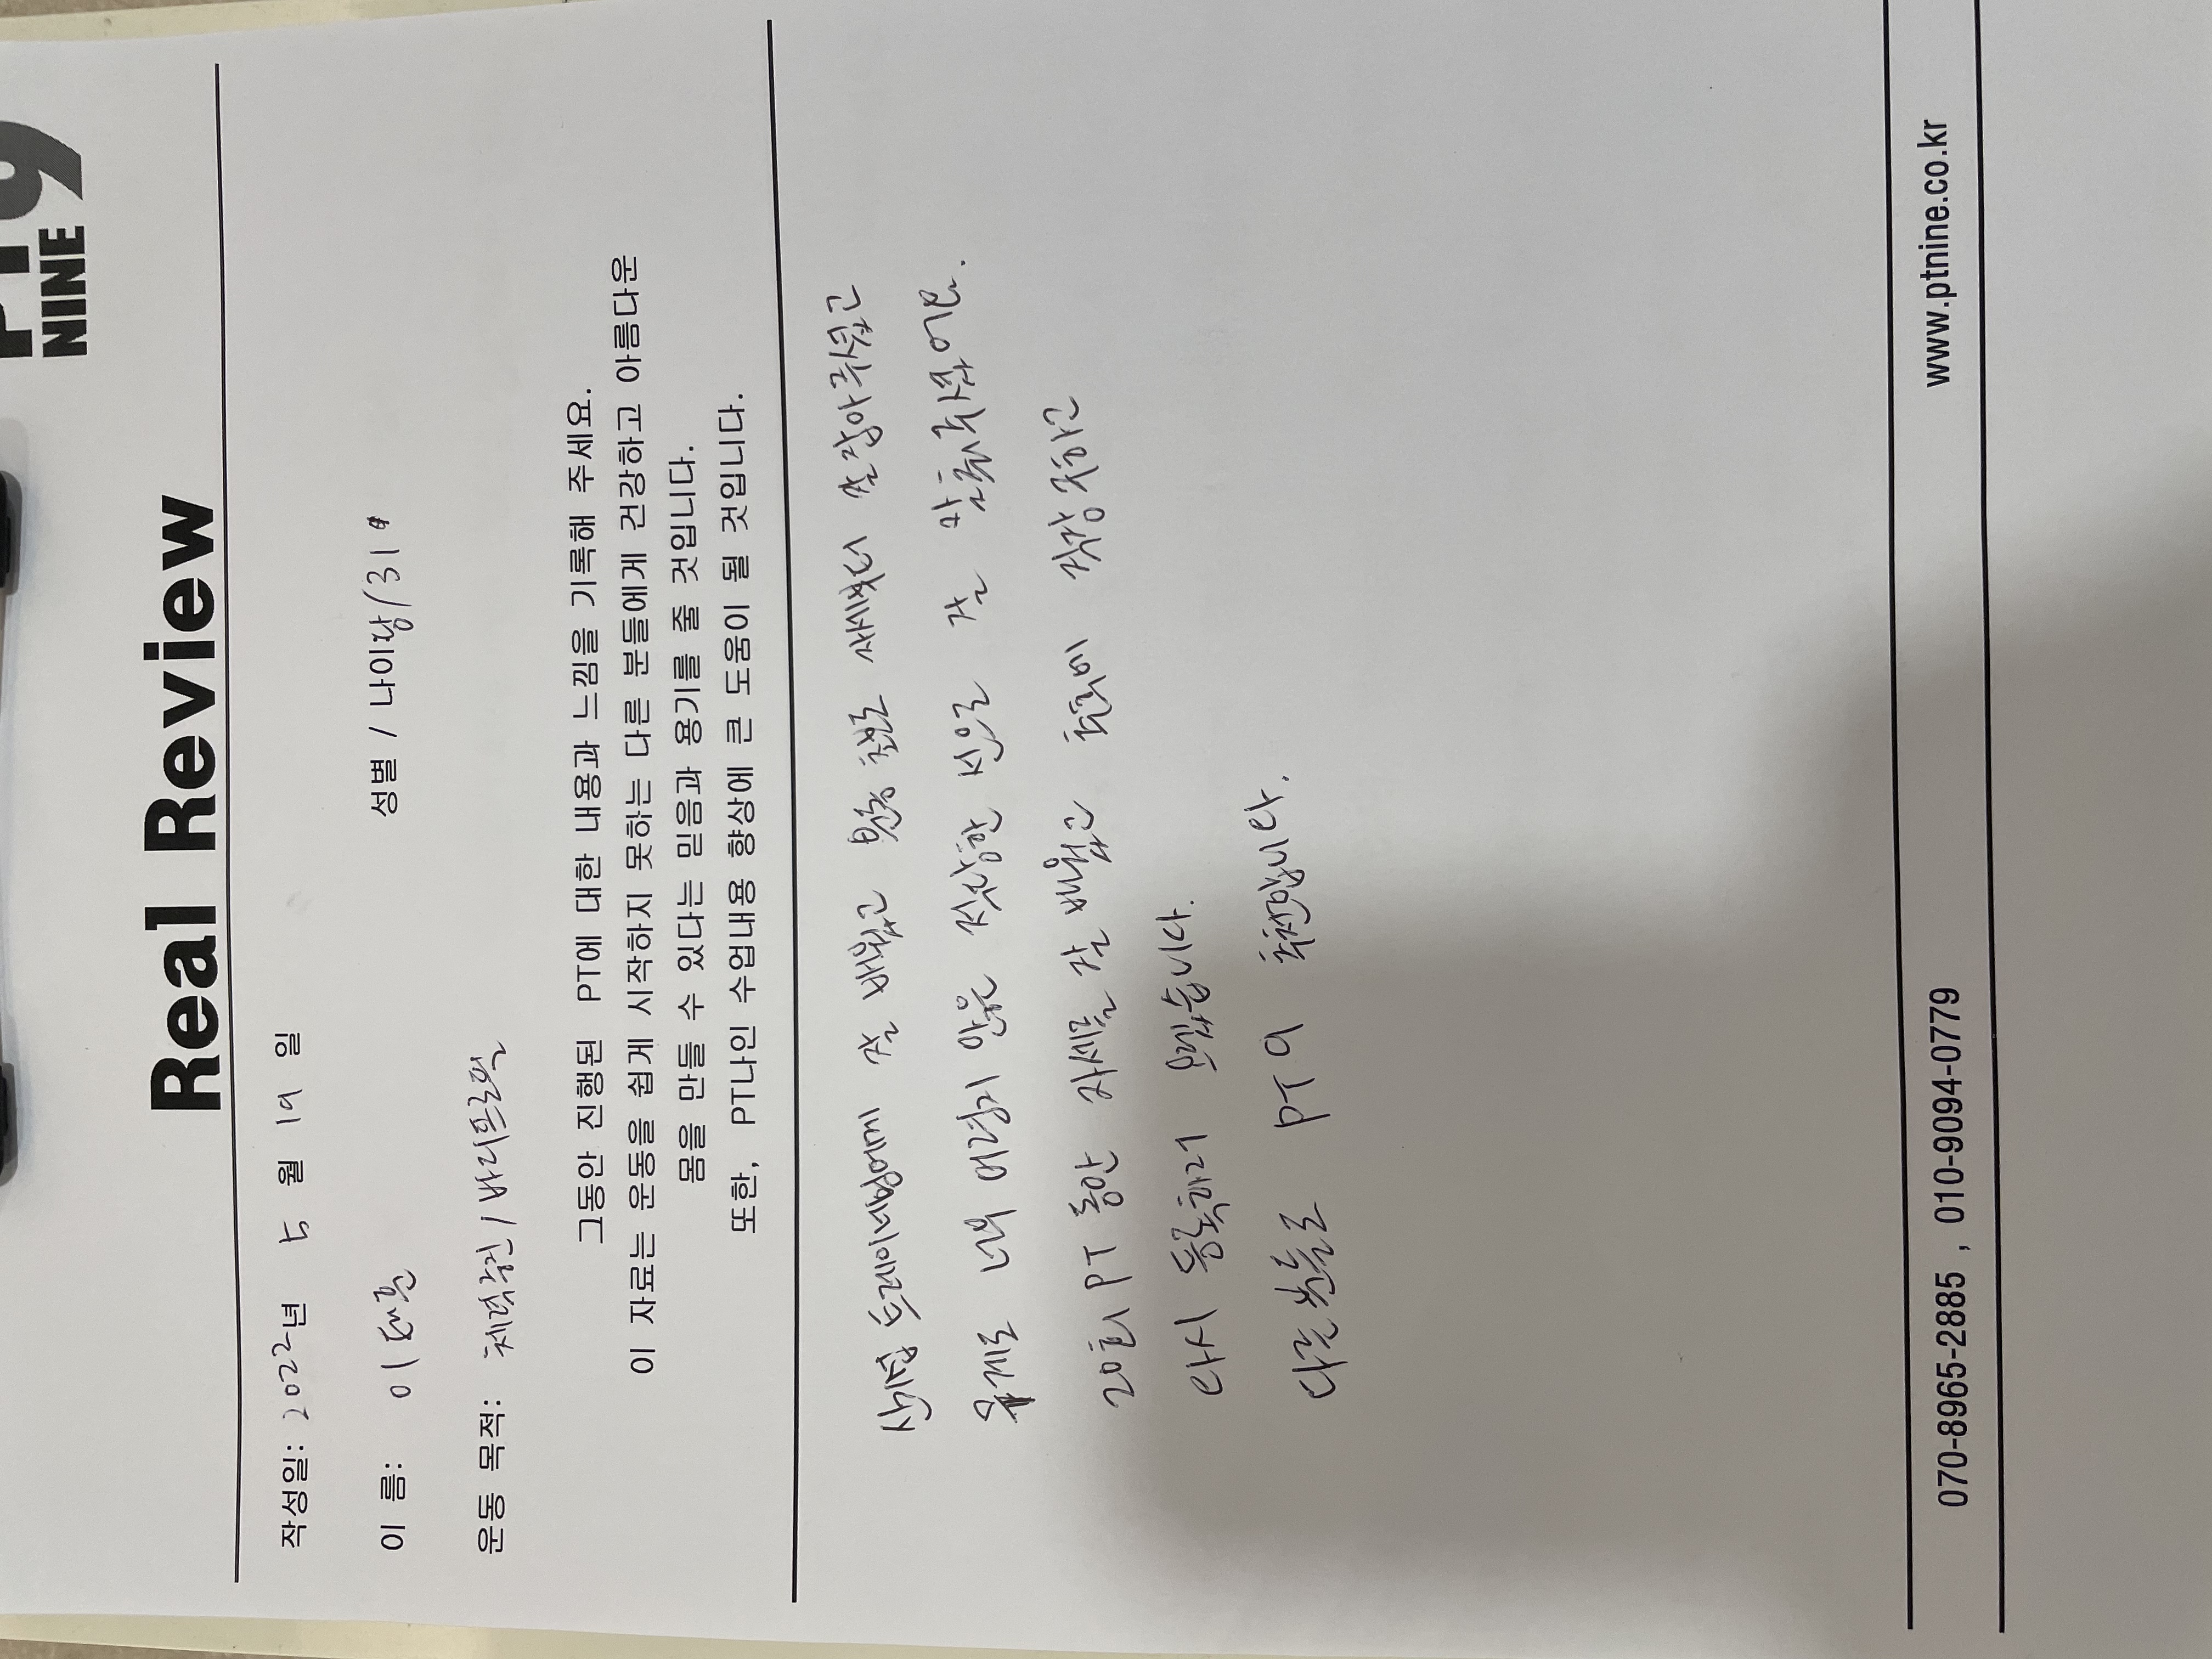 NINE
Real Review
작성일: 2022년 5 월 19 일
이 름: 이태훈 성별 / 나이 남/31
운동 목적: 체력증진 / 바디프로필
그동안 진행된 PT에 대한 내용과 느낌을 기록해 주세요.
이 자료는 운동을 쉽게 시작하지 못하는 다른 분들에게 건강하고 아름다운
몸을 만들 수 있다는 믿음과 용기를 줄 것입니다.
또한, PT나인 수업내용 향상에 큰 도움이 될 것입니다.
트레이너님에게 잘 배웠고 운동 자세부터 잘 잡아주셨고
무게도 너무 어렵지 않은 적당한 선으로 잘 맞춰주셨어요.
20회 PT 동안 자세를 잘 배웠고 꾸준히
다시 등록하려 했습니다.
다른분들도 PT 9 추천합니다.
070-8965-2885 , 010-9094-0779 www.ptnine.co.kr